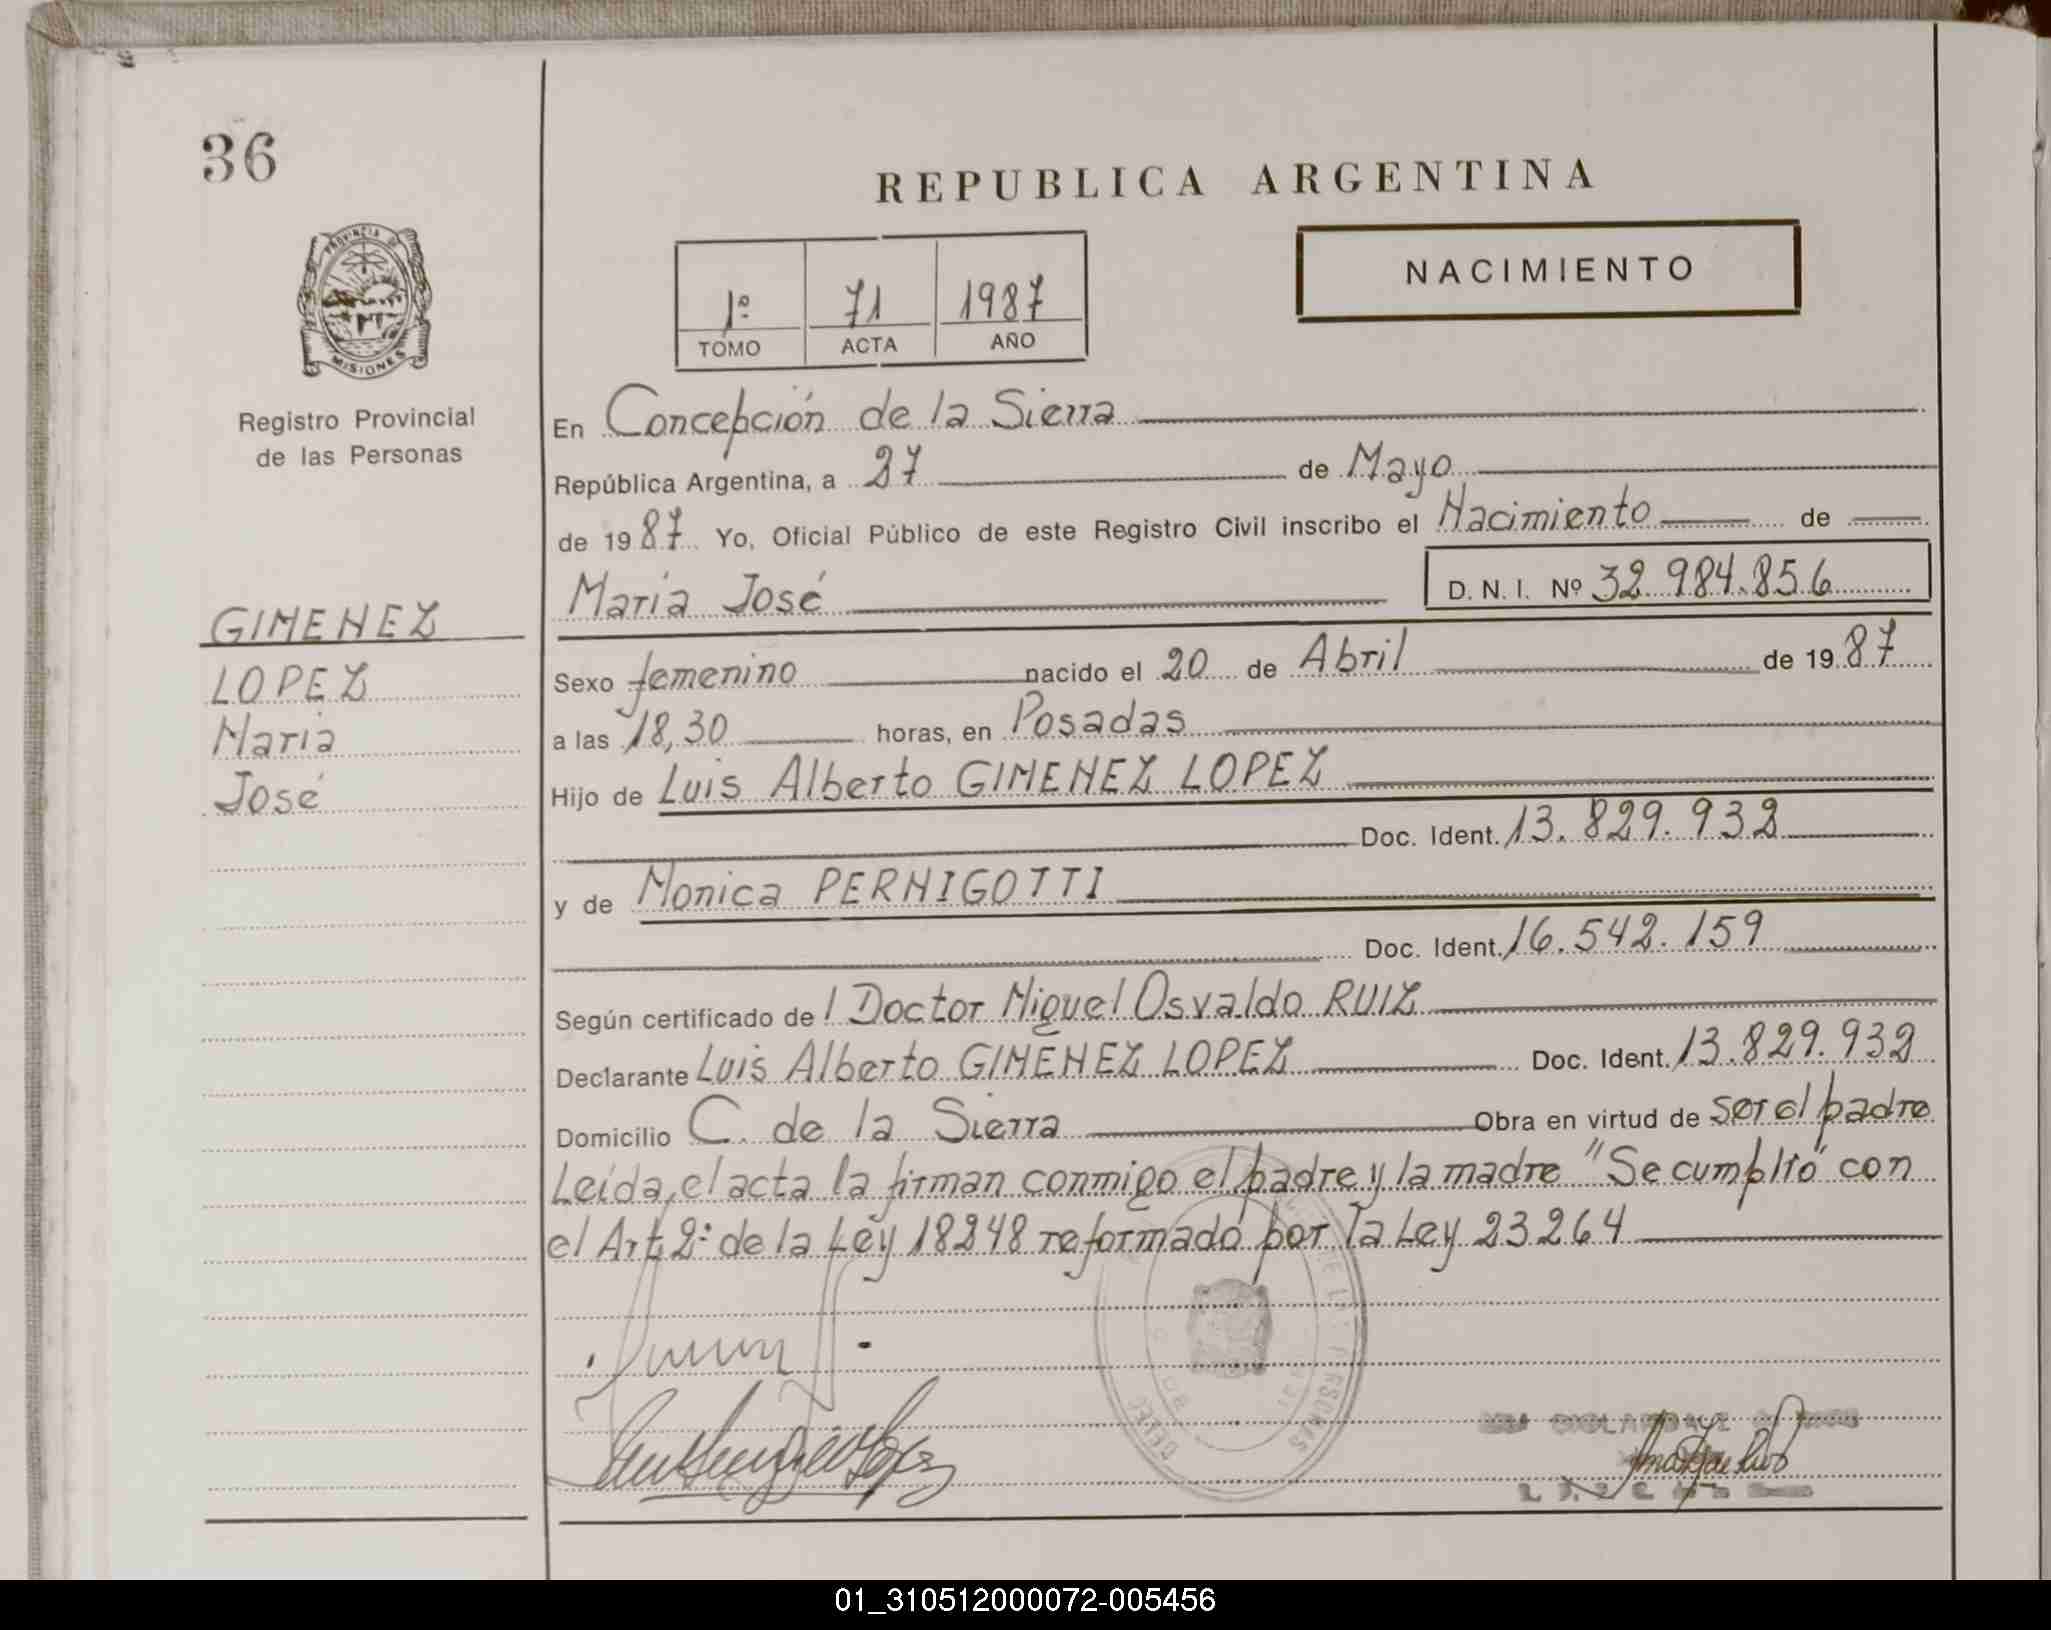 36
REPUBLICA ARGENTINA
NACIMIENTO
1º 71 1987
TOMO ACTA AÑO
PROVINCIA DE
MISIONES
Registro Provincial
de las Personas
GIMENEZ
LOPEZ
Maria
José
En Concepción de la Sierra
República Argentina, a 27 de Mayo
de 1987 Yo, Oficial Público de este Registro Civil inscribo el Nacimiento de
María José D. N. I. Nº 32.984.856
Sexo femenino nacido el 20 de Abril de 1987
a las 18,30 horas, en Posadas
Hijo de Luis Alberto GIMENEZ LOPEZ
Doc. Ident. 13.829.932
y de Monica PERNIGOTTI
Doc. Ident. 16.542.159
Según certificado del Doctor Miguel Osvaldo RUIZ
Declarante Luis Alberto GIMENEZ LOPEZ Doc. Ident. 13.829.932
Domicilio C. de la Sierra Obra en virtud de ser el padre
Leída, el acta la firman conmigo el padre y la madre "Se cumplió" con
el Art. 2º de la Ley 18248 reformado por la Ley 23264
01_310512000072-005456